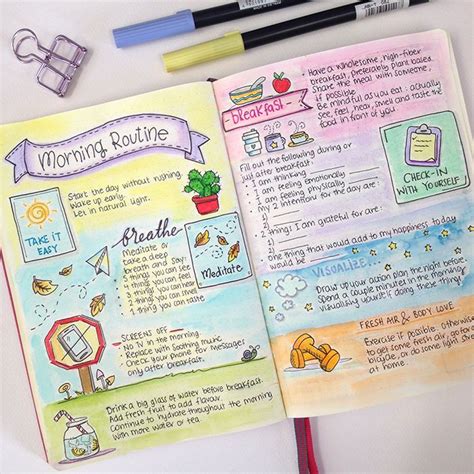 Morning Routine
Start the day without rushing.
Wake up early.
Let in natural light.
TAKE IT
EASY
breathe
Meditate or
take a deep
breath and say:
5 things you can see
4 things you can feel
3 things you can hear
things you can smell
1 thing you can taste
Meditate
SCREENS OFF
No TV in the morning.
Replace with soothing music.
Check your phone for messages
only after breakfast.
Drink a big glass of water before breakfast.
Add fresh fruit to add flavour.
Continue to hydrate throughout the morning
with more water or tea.
breakfast
Have a wholesome, high-fiber
breakfast, preferably plant based.
Share the meal with someone,
if possible.
Be mindful as you eat: actually
see, feel, hear, smell and taste the
food in front of you.
Fill out the following during or
just after breakfast:
I am thinking
I am feeling emotionally
I am feeling physically
my 2 intentions for the day are:
1.
2.
2 things I am grateful for are:
1.
2.
one thing that would add to my happiness today
would be
CHECK-IN
WITH YOURSELF
VISUALIZE...
Draw up your action plan the night before.
Spend a couple minutes in the morning
visualising yourself doing these things
FRESH AIR & BODY LOVE
Exercise if possible, otherwise
to get some fresh air, go for
bicycle, or do some light
at home.